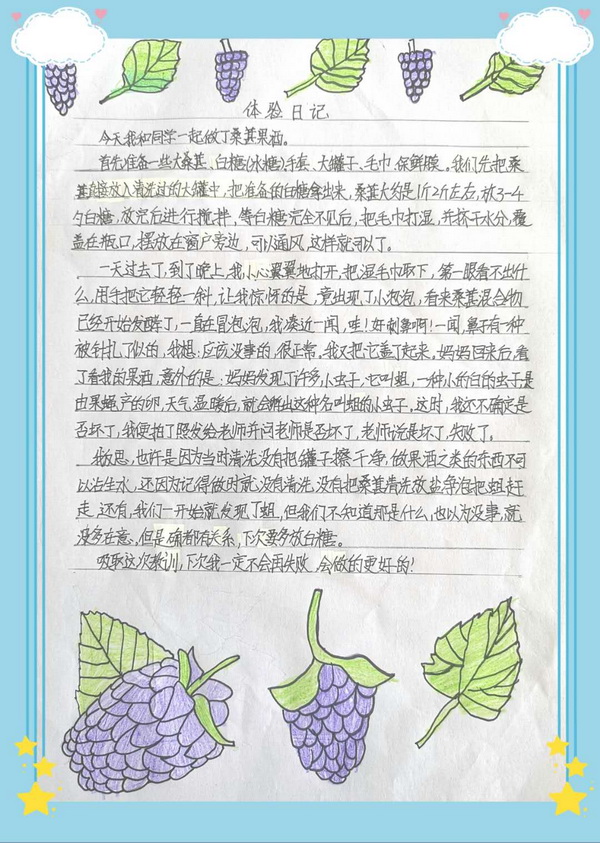 体验日记
今天我和同学一起做了桑葚果酒。
首先准备一些大桑葚、白糖(冰糖)手套、大罐子、毛巾、保鲜膜。我们先把桑
葚直接放入清洗过的大罐中,把准备的白糖拿出来,桑葚大约是1斤2斤左右,放3-4
勺白糖,放完后进行搅拌,等白糖完全不见后,把毛巾打湿,并挤干水分,覆
盖在瓶口,摆放在窗户旁边,可以通风,这样就可以了。
一天过去了,到了晚上,我小心翼翼地打开,把湿毛巾取下,第一眼看不出什
么,用手把它轻轻一斜,让我惊讶的是,竟出现了小泡泡,看来桑葚混合物
已经开始发酵了,一直在冒泡泡,我凑近一闻,哇!好刺鼻啊!一闻,鼻子有一种
被针扎了似的,我想:应该没事的,很正常。我又把它盖了起来,妈妈回来后,看
了看我的果酒,意外的是:妈妈发现了许多小虫子,它叫蛆,一种小的白的虫子是
由果蝇产的卵,天气温暖后,就会孵出这种名叫蛆的小虫子,这时,我还不确定是
否坏了,我便拍了照发给老师并问老师是否坏了,老师说是坏了,失败了。
我反思,也许是因为当时清洗没有把罐子擦干净,做果酒之类的东西不可
以沾生水,还因为记得做时就没有清洗,没有把桑葚清洗放盐浸泡把蛆赶
走,还有,我们一开始就发现了蛆,但我们不知道那是什么,也以为没事,就
没多在意。但是确都有关系,下次要多放白糖。
吸取这次教训,下次我一定不会再失败,会做的更好的!